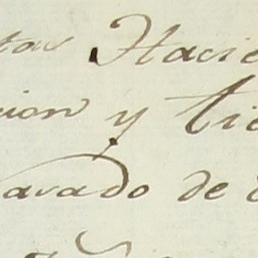 tas Hacie
cion y tie
avado de